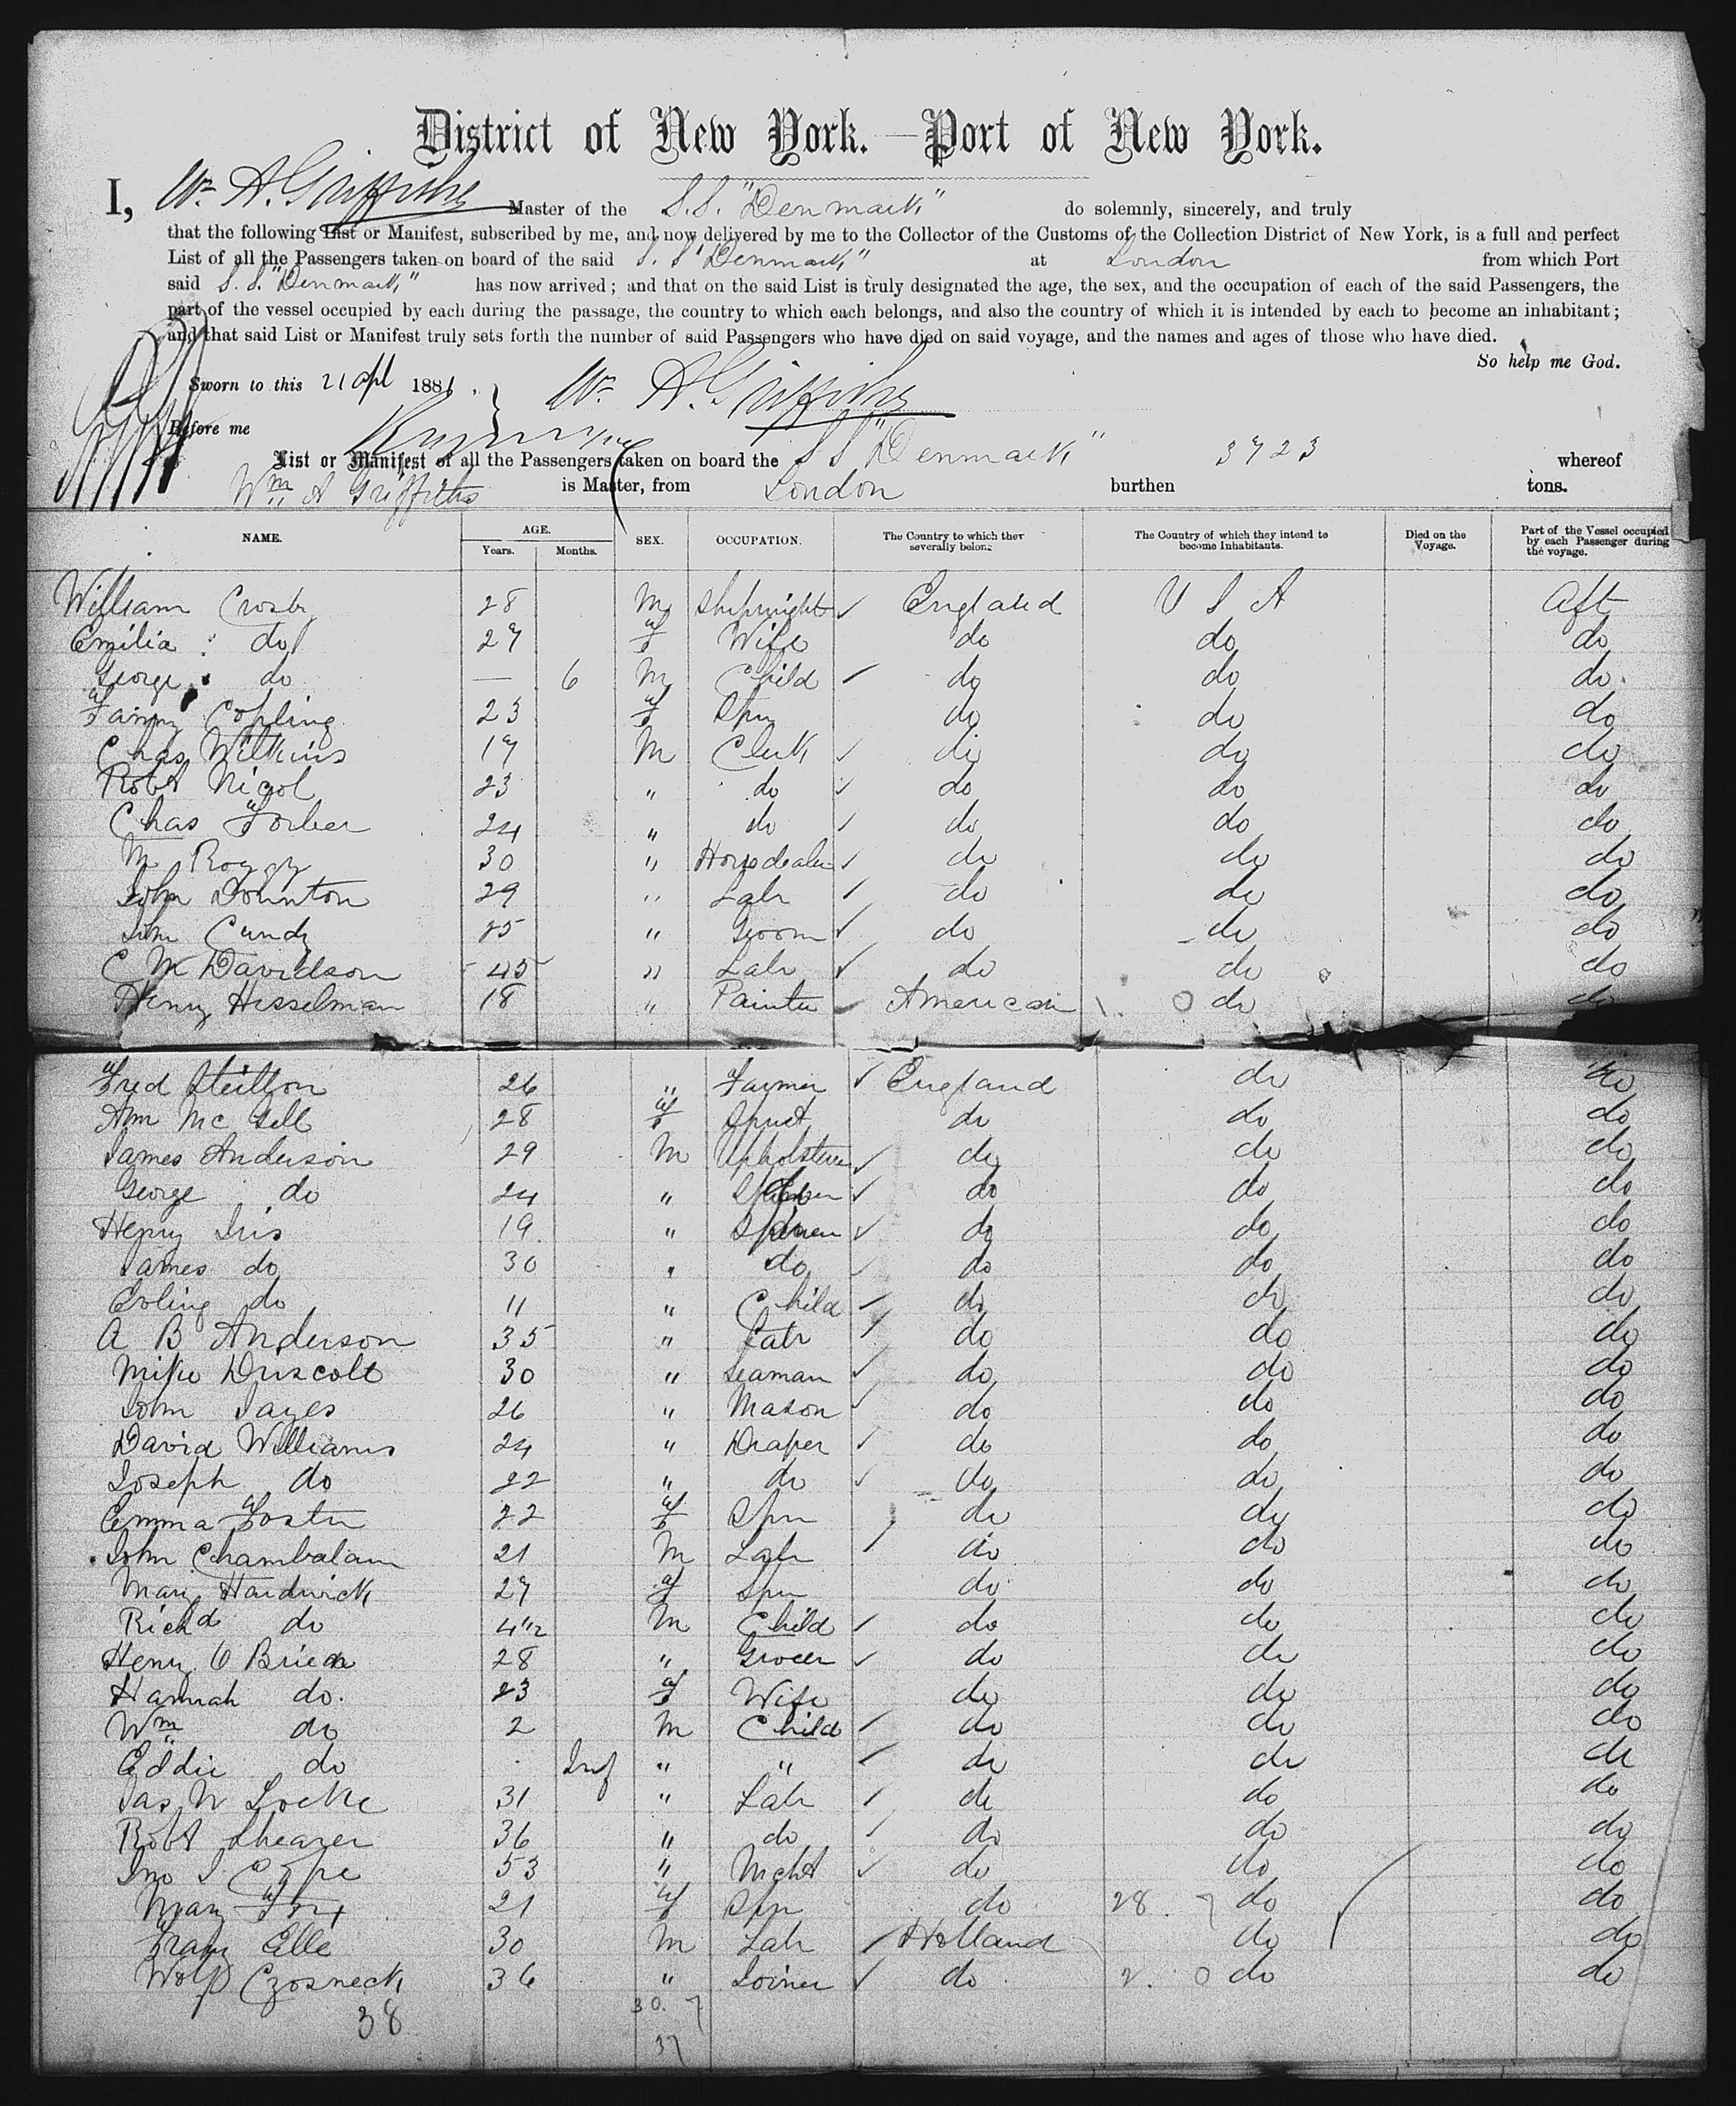 District of New York. — Port of New York.
I, Wm A. Griffiths Master of the S.S. "Denmark" do solemnly, sincerely, and truly
that the following List or Manifest, subscribed by me, and now delivered by me to the Collector of the Customs of the Collection District of New York, is a full and perfect
List of all the Passengers taken on board of the said S. S "Denmark" at London from which Port
said S. S. "Denmark" has now arrived; and that on the said List is truly designated the age, the sex, and the occupation of each of the said Passengers, the
part of the vessel occupied by each during the passage, the country to which each belongs, and also the country of which it is intended by each to become an inhabitant;
and that said List or Manifest truly sets forth the number of said Passengers who have died on said voyage, and the names and ages of those who have died.
So help me God.
Sworn to this 21 Apl 1881. Wm A. Griffiths
Before me
List or Manifest of all the Passengers taken on board the S S "Denmark" 3723 whereof
Wm A Griffiths is Master, from London burthen tons.
NAME. AGE. Years. Months. SEX. OCCUPATION. The Country to which they severally belong The Country of which they intend to become Inhabitants. Died on the Voyage. Part of the Vessel occupied by each Passenger during the voyage.
William Crosby 28 M Shipwright England U S A Aft
Emilia do 27 F Wife do do do
George do — 6 M Child do do do
Fanny Copling 23 F Spn do do do
Chas Wilkins 19 M Clerk do do do
Robt Nicol 23 " do do do do
Chas Forber 24 " do do do do
M 30 " Horsdealer do do do
John Dounton 29 " Labr do do do
Jim Cundy 25 " Groom do do do
C M Davidson 45 " Labr do do do
Henry Hesselman 18 " Painter American do do
Fred 26 " Farmer England do do
Ann Mc Gell 28 F do do do
James Anderson 29 M Upholsterer do do do
George do 24 " do do do
Henry Iris 19 " do do do
James do 30 " do do do do
do 11 " Child do do do
A B Anderson 35 " Labr do do do
Mike Driscoll 30 " Seaman do do do
John Sayes 26 " Mason do do do
David Williams 24 " Draper do do do
Joseph do 22 " do do do do
Emma Foster 22 F Spn do do do
John Chambalam 21 M Labr do do do
Mary Hardwick 27 F Spn do do do
Richd do 4 M Child do do do
Henry O Brien 28 " Grocer do do do
Hannah do. 23 F Wife do do do
Wm do 2 M Child do do do
Eddie do Inf " " do do do
Jas W Locke 31 " Labr do do do
Robt Shearer 36 " do do do do
Jno J Cope 53 " Mcht do do do
Mary Fox 21 F Spn do 28. 7 do do
Franz Elle 30 M Labr Holland do do
Wolf Czosneck 36 " Joiner do 2. 0 do do
38 30. 7
37